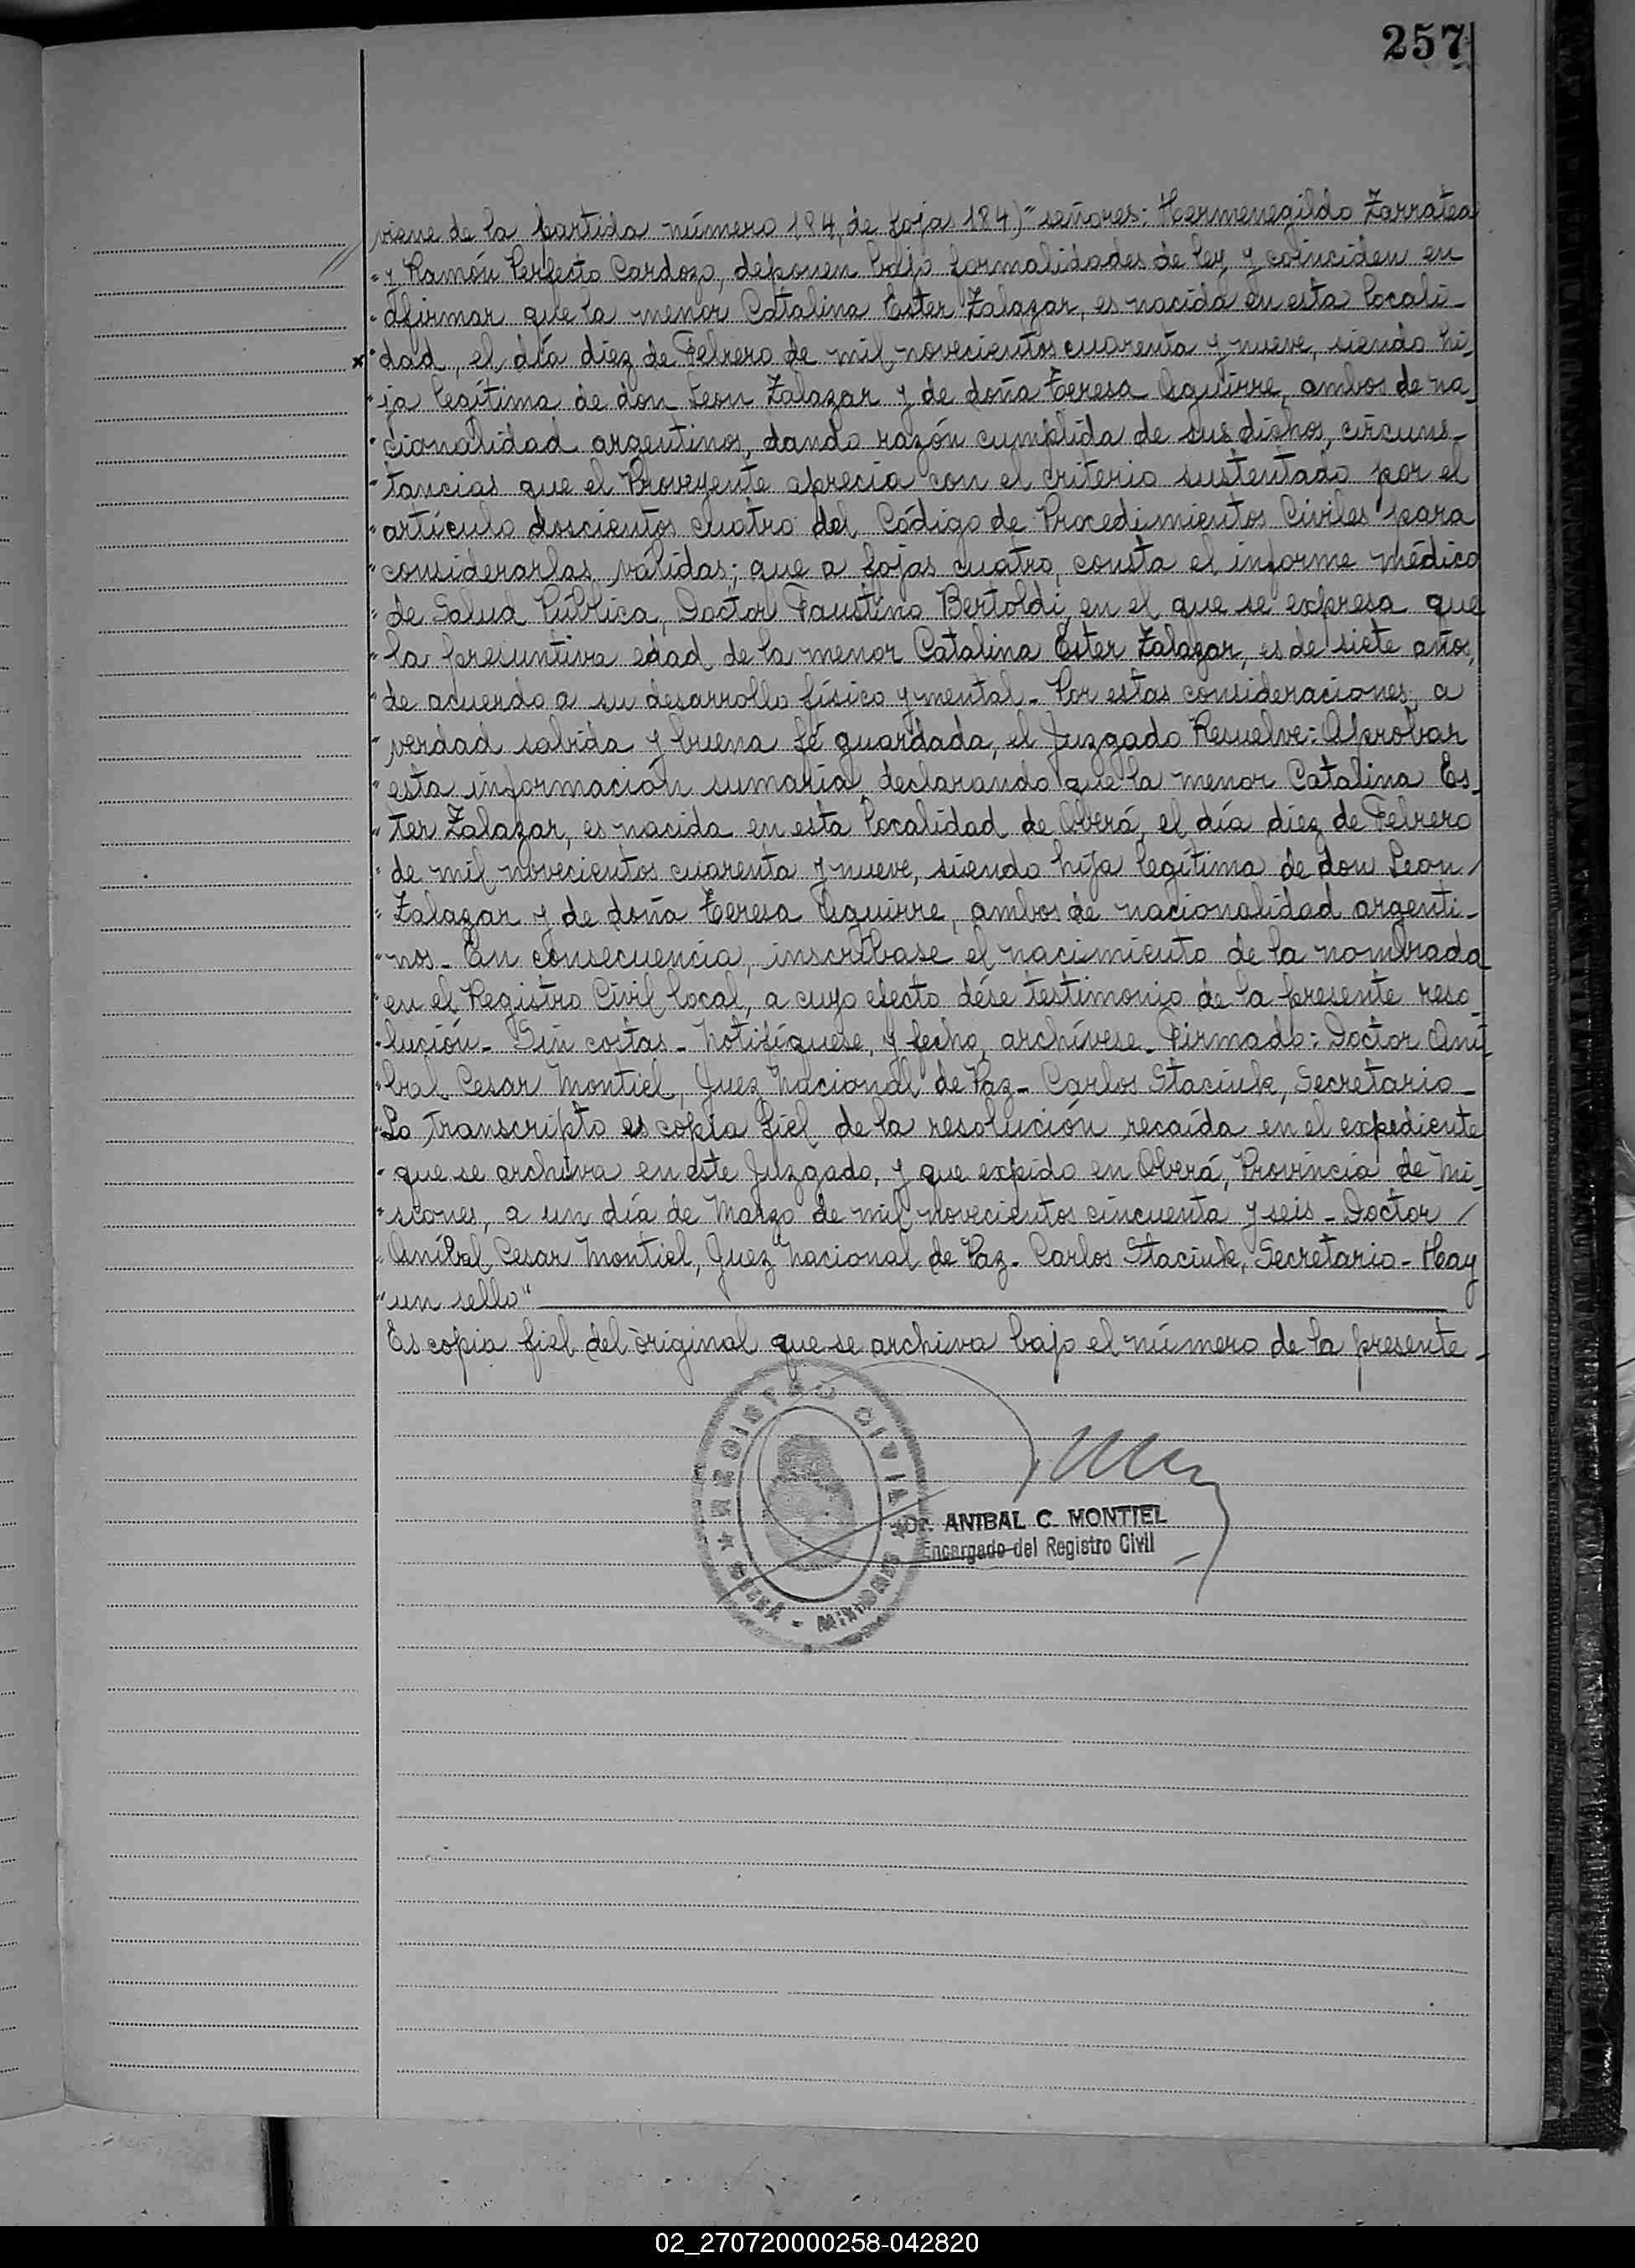 257
viene de la partida número 184, de fojas 184)" señores: Hermenegildo Zarratea
"y Ramón Perfecto Cardozo, deponen bajo formalidades de ley y coinciden en
"afirmar que la menor Catalina Ester Zalazar, es nacida en esta locali-
"dad, el día diez de Febrero de mil novecientos cuarenta y nueve, siendo hi-
"ja legítima de don Leon Zalazar y de doña Teresa Aguirre, ambos de na-
"cionalidad argentinos, dando razón cumplida de sus dichos, circuns-
"tancias que el Proveyente aprecia con el criterio sustentado por el
"artículo doscientos cuatro del Código de Procedimientos Civiles para
"considerarlas válidas; que a fojas cuatro, consta el informe médico
"de Salud Pública, Doctor Faustino Bertoldi, en el que se expresa que
"la presuntiva edad de la menor Catalina Ester Zalazar, es de siete años,
"de acuerdo a su desarrollo físico y mental- Por estas consideraciones, a
"verdad sabida y buena fé guardada, el Juzgado Resuelve: Aprobar
"esta información sumaria, declarando que la menor Catalina Es-
"ter Zalazar, es nacida en esta localidad de Oberá, el día diez de Febrero
"de mil novecientos cuarenta y nueve, siendo hija legítima de don Leon/
"Zalazar y de doña Teresa Aguirre, ambos de nacionalidad argenti-
"nos- En consecuencia, inscríbase el nacimiento de la nombrada
"en el Registro Civil local, a cuyo efecto dése testimonio de la presente reso-
"lución- Sin costas- Notifíquese, y fecho, archívese- Firmado: Doctor Aní-
"bal Cesar Montiel, Juez Nacional de Paz- Carlos Staciuk, Secretario-
"Lo transcripto es copia fiel de la resolución recaída en el expediente
"que se archiva en este Juzgado, y que expido en Oberá, Provincia de Mi-
"siones, a un día de Marzo de mil novecientos cincuenta y seis- Doctor /
"Aníbal Cesar Montiel, Juez Nacional de Paz- Carlos Staciuk, Secretario- Hay
"un sello"
Es copia fiel del original que se archiva bajo el número de la presente-
REGISTRO CIVIL
OBERA - MISIONES
Dr. ANIBAL C. MONTIEL
Encargado del Registro Civil
02_270720000258-042820